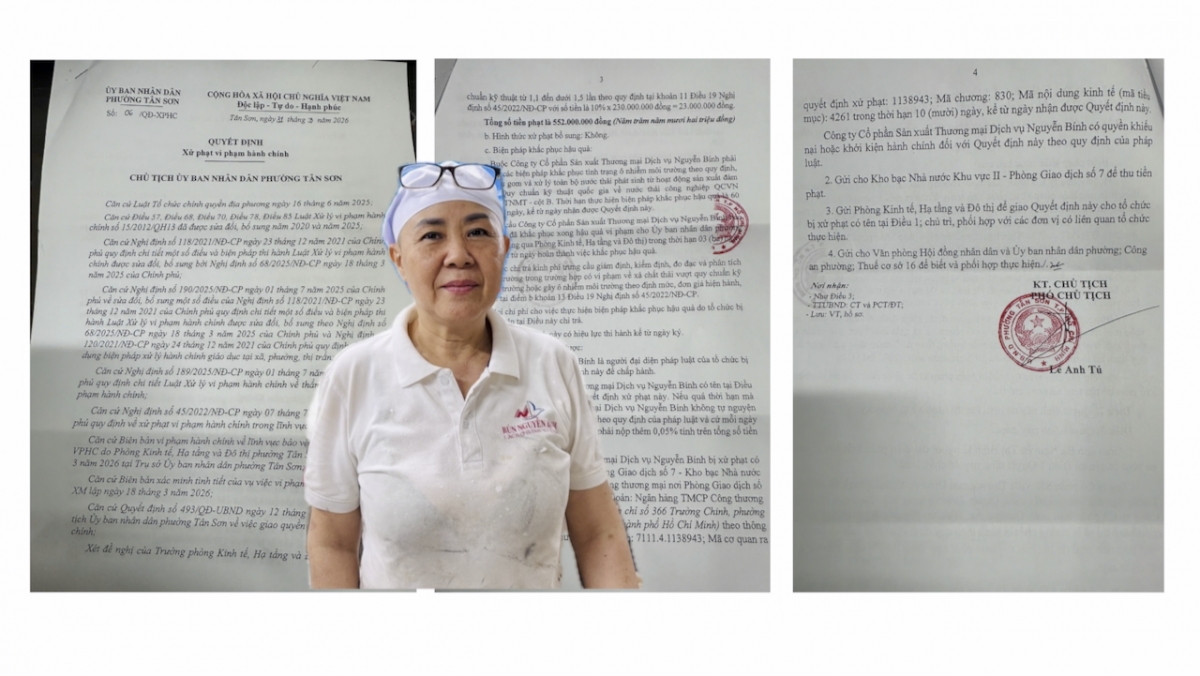 ỦY BAN NHÂN DÂN
PHƯỜNG TÂN SƠN
Số: 06 /QĐ-XPHC
CỘNG HÒA XÃ HỘI CHỦ NGHĨA VIỆT NAM
Độc lập - Tự do - Hạnh phúc
Tân Sơn, ngày 31 tháng 3 năm 2026
QUYẾT ĐỊNH
Xử phạt vi phạm hành chính
CHỦ TỊCH ỦY BAN NHÂN DÂN PHƯỜNG TÂN SƠN
Căn cứ Luật Tổ chức chính quyền địa phương ngày 16 tháng 6 năm 2025;
Căn cứ Điều 57, Điều 68, Điều 70, Điều 78, Điều 85 Luật Xử lý vi phạm hành
chính số 15/2012/QH13 đã được sửa đổi, bổ sung năm 2020 và năm 2025;
Căn cứ Nghị định số 118/2021/NĐ-CP ngày 23 tháng 12 năm 2021 của Chính
phủ quy định chi tiết một số điều và biện pháp thi hành Luật Xử lý vi phạm hành
chính được sửa đổi, bổ sung bởi Nghị định số 68/2025/NĐ-CP ngày 18 tháng 3
năm 2025 của Chính phủ;
Căn cứ Nghị định số 190/2025/NĐ-CP ngày 01 tháng 7 năm 2025 của Chính
phủ về sửa đổi, bổ sung một số điều của Nghị định số 118/2021/NĐ-CP ngày 23
tháng 12 năm 2021 của Chính phủ quy định chi tiết một số điều và biện pháp thi
hành Luật Xử lý vi phạm hành chính được sửa đổi, bổ sung theo Nghị định số
68/2025/NĐ-CP ngày 18 tháng 3 năm 2025 của Chính phủ và Nghị định
120/2021/NĐ-CP ngày 24 tháng 12 năm 2021 của Chính phủ quy định
dụng biện pháp xử lý hành chính giáo dục tại xã, phường, thị trấn
Căn cứ Nghị định số 189/2025/NĐ-CP ngày 01 tháng 7
phủ quy định chi tiết Luật Xử lý vi phạm hành chính về thẩm
phạm hành chính;
Căn cứ Nghị định số 45/2022/NĐ-CP ngày 07 tháng 7
phủ quy định về xử phạt vi phạm hành chính trong lĩnh vực
Căn cứ Biên bản vi phạm hành chính về lĩnh vực bảo vệ
VPHC do Phòng Kinh tế, Hạ tầng và Đô thị phường Tân Sơn
3 năm 2026 tại Trụ sở Ủy ban nhân dân phường Tân Sơn;
Căn cứ Biên bản xác minh tình tiết của vụ việc vi phạm
XM lập ngày 18 tháng 3 năm 2026;
Căn cứ Quyết định số 493/QĐ-UBND ngày 12 tháng
tịch Ủy ban nhân dân phường Tân Sơn về việc giao quyền
chính;
Xét đề nghị của Trưởng phòng Kinh tế, Hạ tầng và
BÚN NGUYỄN
3
chuẩn kỹ thuật từ 1,1 đến dưới 1,5 lần theo quy định tại khoản 11 Điều 19 Nghị
định số 45/2022/NĐ-CP với số tiền là 10% x 230.000.000 đồng = 23.000.000 đồng.
Tổng số tiền phạt là 552.000.000 đồng (Năm trăm năm mươi hai triệu đồng)
b. Hình thức xử phạt bổ sung: Không.
c. Biện pháp khắc phục hậu quả:
Buộc Công ty Cổ phần Sản xuất Thương mại Dịch vụ Nguyễn Bính phải
các biện pháp khắc phục tình trạng ô nhiễm môi trường theo quy định,
gom và xử lý toàn bộ nước thải phát sinh từ hoạt động sản xuất đảm
Quy chuẩn kỹ thuật quốc gia về nước thải công nghiệp QCVN
TNMT - cột B. Thời hạn thực hiện biện pháp khắc phục hậu quả là 60
ngày, kể từ ngày nhận được Quyết định này.
cầu Công ty Cổ phần Sản xuất Thương mại Dịch vụ Nguyễn
đã khắc phục xong hậu quả vi phạm cho Ủy ban nhân dân phường
qua Phòng Kinh tế, Hạ tầng và Đô thị) trong thời hạn 03 (ba)
từ ngày hoàn thành việc khắc phục hậu quả.
chi trả kinh phí trưng cầu giám định, kiểm định, đo đạc và phân tích
trường trong trường hợp có vi phạm về xả chất thải vượt quy chuẩn kỹ
trường hoặc gây ô nhiễm môi trường theo định mức, đơn giá hiện hành,
tại điểm b khoản 13 Điều 19 Nghị định số 45/2022/NĐ-CP.
chi phí cho việc thực hiện biện pháp khắc phục hậu quả do tổ chức bị
tên tại Điều này chi trả.
này có hiệu lực thi hành kể từ ngày ký.
được:
Bính là người đại diện pháp luật của tổ chức bị
định này để chấp hành.
mại Dịch vụ Nguyễn Bính có tên tại Điều
định xử phạt này. Nếu quá thời hạn mà
Dịch vụ Nguyễn Bính không tự nguyện
theo quy định của pháp luật và cứ mỗi ngày
phải nộp thêm 0,05% tính trên tổng số tiền
mại Dịch vụ Nguyễn Bính bị xử phạt có
Giao dịch số 7 - Kho bạc Nhà nước
thương mại nơi Phòng Giao dịch số
Ngân hàng TMCP Công thương
chỉ số 366 Trường Chinh, phường
phố Hồ Chí Minh) theo thông
7111.4.1138943; Mã cơ quan ra
4
quyết định xử phạt: 1138943; Mã chương: 830; Mã nội dung kinh tế (mã tiểu
mục): 4261 trong thời hạn 10 (mười) ngày, kể từ ngày nhận được Quyết định này.
Công ty Cổ phần Sản xuất Thương mại Dịch vụ Nguyễn Bính có quyền khiếu
nại hoặc khởi kiện hành chính đối với Quyết định này theo quy định của pháp
luật.
2. Gửi cho Kho bạc Nhà nước Khu vực II - Phòng Giao dịch số 7 để thu tiền
phạt.
3. Gửi Phòng Kinh tế, Hạ tầng và Đô thị để giao Quyết định này cho tổ chức
bị xử phạt có tên tại Điều 1; chủ trì, phối hợp với các đơn vị có liên quan tổ chức
thực hiện.
4. Gửi cho Văn phòng Hội đồng nhân dân và Ủy ban nhân dân phường; Công
an phường; Thuế cơ sở 16 để biết và phối hợp thực hiện./.
Nơi nhận:
- Như Điều 3;
- TTUBND: CT và PCT/ĐT;
- Lưu: VT, hồ sơ.
KT. CHỦ TỊCH
PHÓ CHỦ TỊCH
Lê Anh Tú